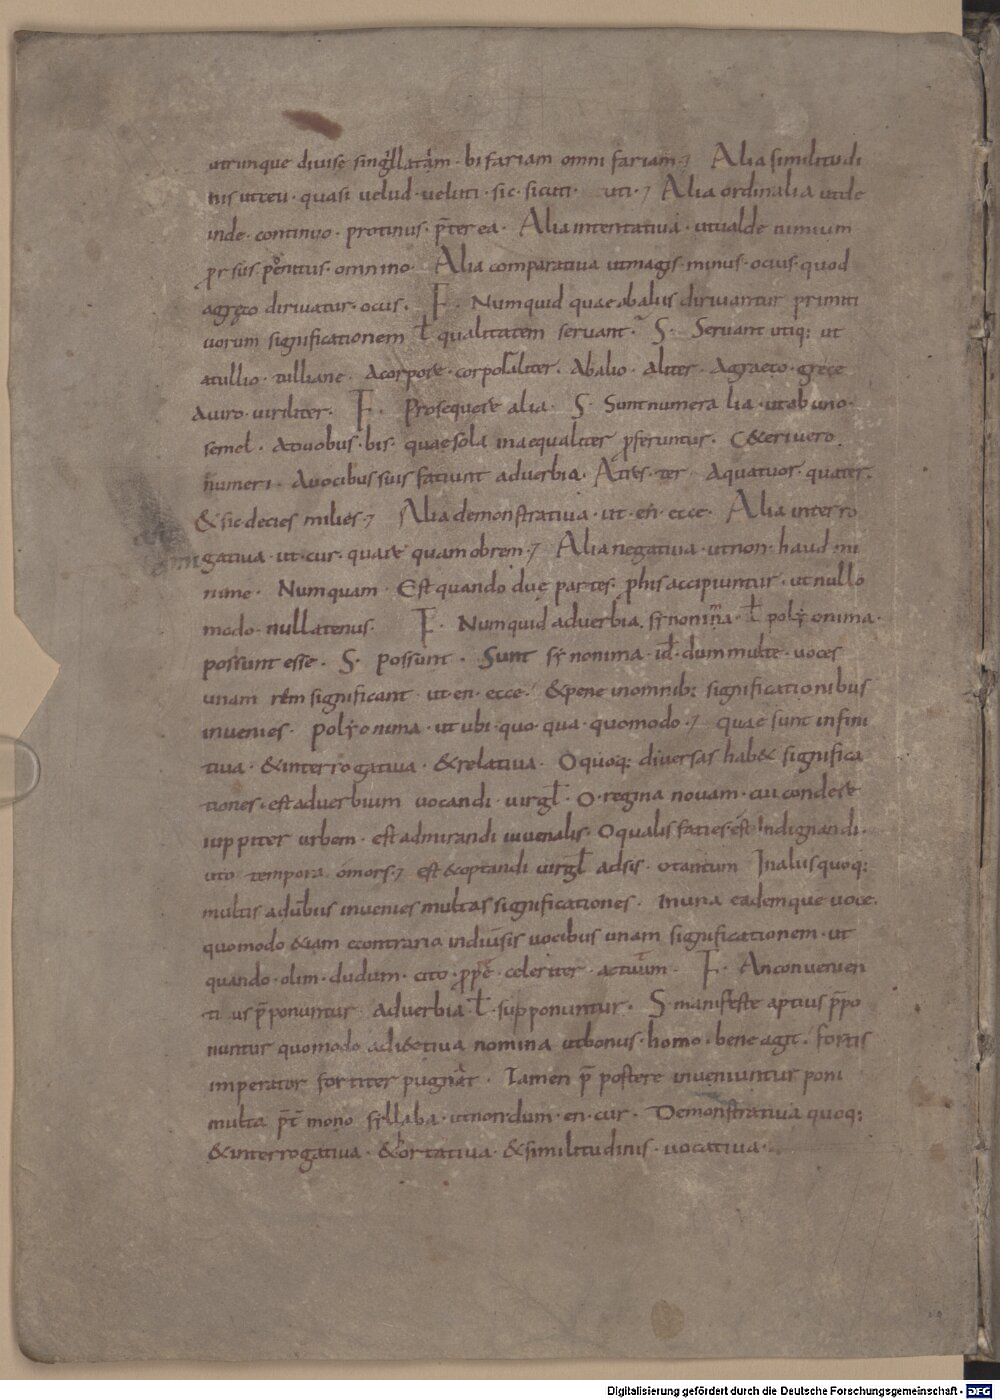 utrunque divise singillatim · bifariam omnifariam · Alia similitudi
nis ut ceu · quasi velud · veluti · sic · sicuti · uti · Alia ordinalia ut de
inde · continuo · protinus · p̄terea · Alia intentativa · ut valde nimium
prsus penitus · omnino · Alia comparativa ut magis · minus · ocius · quod
a greco dirivatur · ocus · F · Numquid quae ab aliis dirivantur primiti
vorum significationem ł qualitatem servant · S · Servant utiq; ut
a tullio · tulliane · A corpore · corporaliter · Ab alio · aliter · A graeco · grece
A viro · viriliter · F · Prosequere alia · S · Sunt numeralia · ut ab uno ·
semel · A duobus · bis · quae sola inaequaliter pferuntur · C&eri vero
numeri · A vocibus suis faciunt adverbia · A tres · ter · A quatuor · quater ·
& sic decies milies · Alia demonstrativa · ut · en · ecce · Alia interro
gativa · ut · cur · quare quamobrem · Alia negativa · ut non · haud mi
nime · Numquam · Est quando due partes · p his accipiuntur · ut nullo
modo · nullatenus · F · Numquid adverbia synonima · ł polyonima ·
possunt esse · S · Possunt · Sunt synonima · id · dum multe · voces
unam rem significant · ut en · ecce · & pene in omnib; significationibus
invenies · polyonima · ut ubi · quo · qua · quomodo · quae sunt infini
tiva · & interrogativa · & relativa · O quoq; diversas hab& significa
tiones · est adverbium vocandi · virgł · O · regina novam · cui condere
iuppiter urbem · est admirandi iuvenalis · O qualis facies · est Indignandi ·
ut o tempora o mors · est & optandi virgł adsis · o tantum In aliis quoq;
multis advbiis invenies multas significationes · In una eademque voce ·
quomodo &iam econtrario in divisis vocibus unam significationem · ut
quando · olim · dudum · cito · prope · celeriter · actutum · F · An convenien
tius p̄ponuntur adverbia · ł · supponuntur · S · manifeste aptius p̄po
nuntur quomodo adiectiva nomina ut bonus · homo · bene agit · fortis
imperator fortiter pugnat · Tamen p̄postere inveniuntur poni
multa p̄t mono syllaba · ut non dum · en · cur · Demonstrativa quoq;
& interrogativa · & ortativa · & similitudinis · vocativa ·
Digitalisierung gefördert durch die Deutsche Forschungsgemeinschaft - DFG